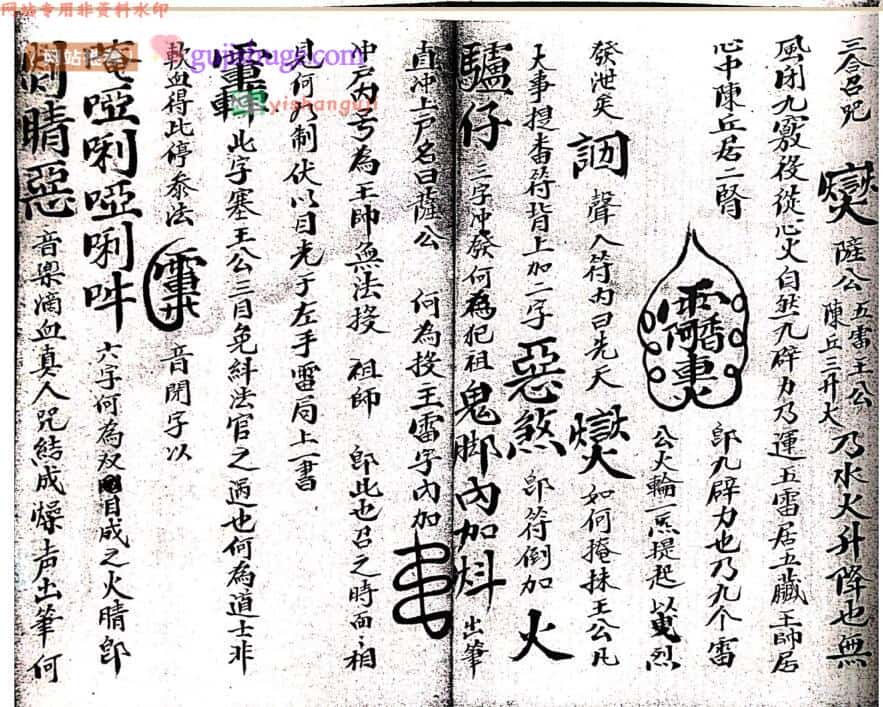 网站专用非资料水印
gujishuge.com
yishanguji
三合召咒 薩公 五雷王公 陳丘三升大 乃水火升降也無
風閉九竅後從心火自然九辟力乃運五雷居五臟王帥居
心中陳丘居二腎
即九辟力也乃九个雷
公火輪一炁提起以 烈
發泄矣 聲入符内曰先天 如何掩抹王公凡
大事提番符背上加二字 惡煞 即符倒加 火
驢仔 三字冲發何為犯祖 鬼脚内加 出筆
直冲上户名曰薩公 何為投主雷字内加
冲户内号為王帥無法投 祖師 即此也召之時面々相
見何為制伏以目光于左手雷局上一書
此字塞王公三目免糾法官之過也何為道士非
軟血得此停叅法 音閉字以
唵啞唎啞唎吽 六字何為双 目成之火睛即
睛惡 音樂滴血真人咒結成燥声出筆何